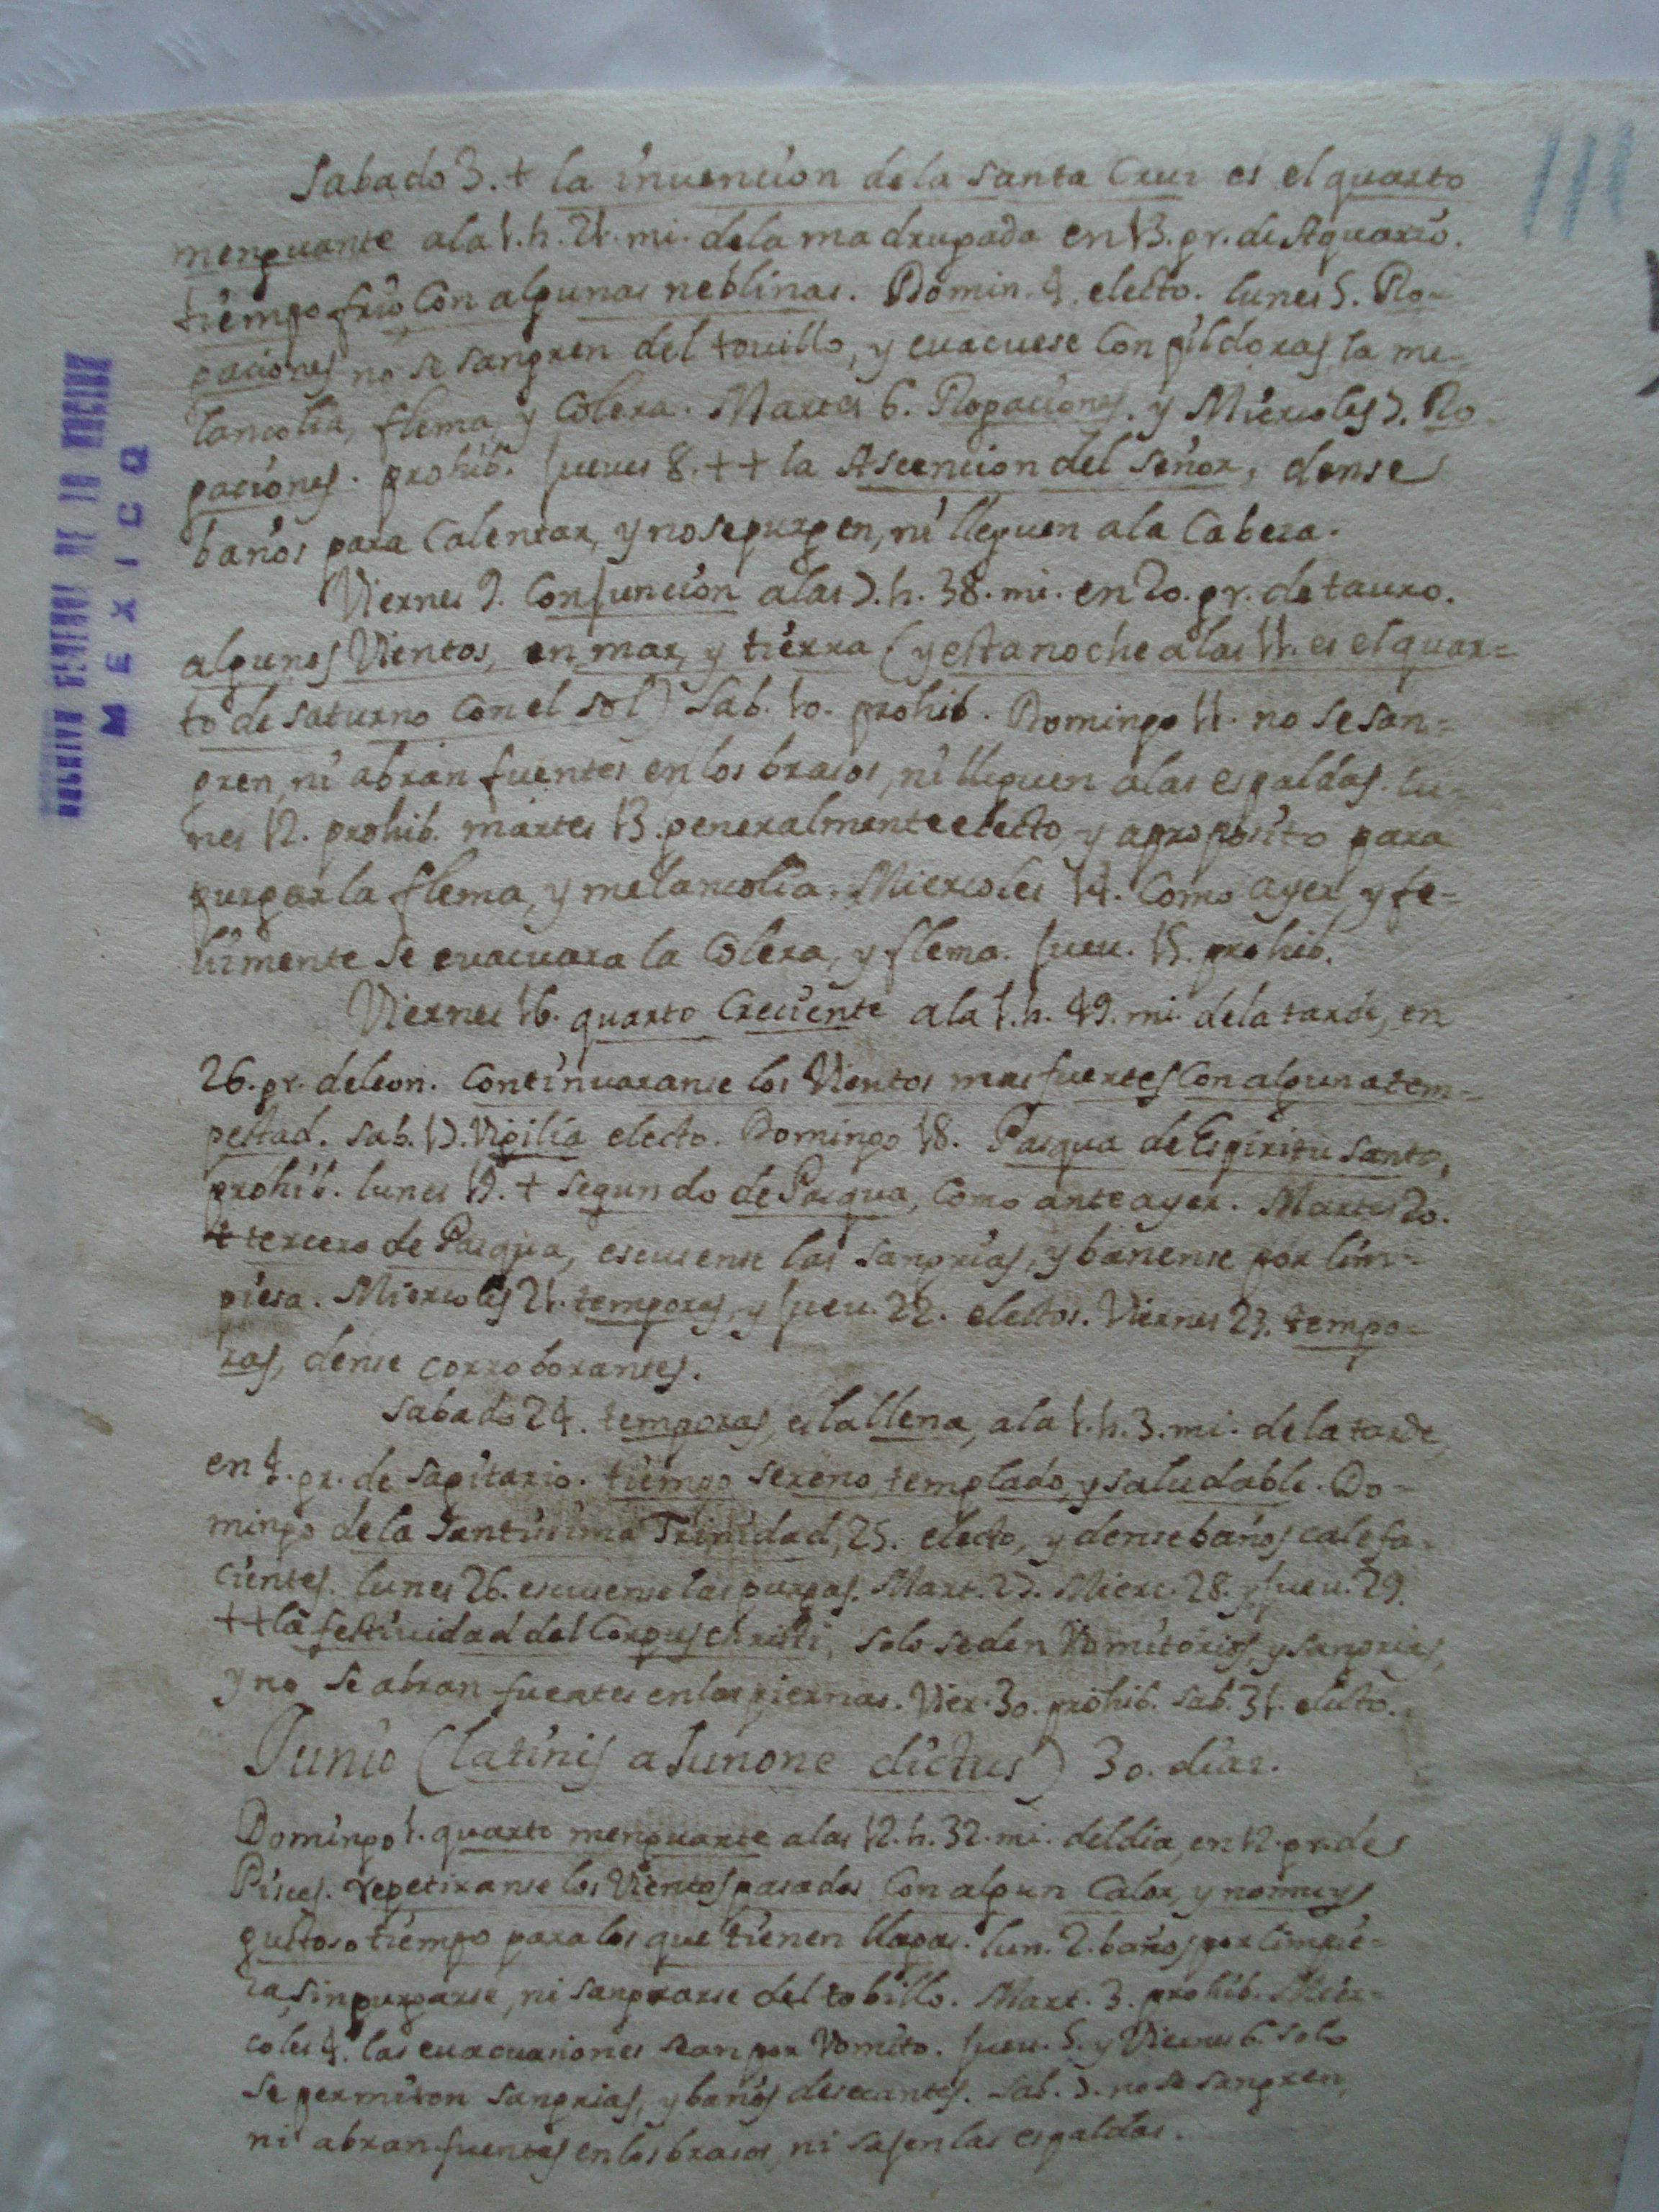 111
Sabado 3. + la inuencion dela Santa Cruz es el quarto
menguante ala 1. h. 21. mi. dela madrugada en 13. gr. de Aquario.
tiempo frio Con algunas neblinas. Domin. 4. electo. lunes 5. Ro-
gaciones no se sangren del touillo, y euacuese Con pildoras, la me-
lancolia, flema, y Colera. Martes 6. Rogaciones. y Miercoles 7. Ro-
gaciones. prohib. Jueues 8. ++ la Ascencion del Señor, dense
baños para Calentar, y no se purgen, ni lleguen ala Cabeza.
Viernes 9. Conjuncion alas 7. h. 38. mi. en 20. gr. de tauro.
algunos Vientos, en mar, y tierra (y esta noche alas 11. es el quar-
to de saturno Con el sol) Sab. 10. prohib. Domingo 11. no se san-
gren, ni abran fuentes en los brasos, ni lleguen alas espaldas. lu-
nes 12. prohib. martes 13. generalmente electo, y aproposito para
purgar la flema, y melancolia. Miercoles 14. Como ayer, y fe-
lizmente se euacuara la Colera, y flema. Jueu. 15. prohib.
Viernes 16. quarto Creciente ala 1. h. 49. mi. dela tarde, en
26. gr. deleon. Continuaranse los Vientos mas fuertes Con alguna tem-
pestad. Sab. 17. Vigilia electo. Domingo 18. Pasqua de Espiritu Santo,
prohib. lunes 19. + segundo de Pasqua, Como anteayer. Martes 20.
+ tercero de Pasqua, escusense las sangrias, y bañense por lim-
piesa. Miercoles 21. temporas, y Jueu. 22. electos. Viernes 23. tempo-
ras, dense corroborantes.
Sabado 24. temporas, es la llena, ala 1. h. 3. mi. de la tarde,
en 4. gr. de Sagitario. tiempo sereno, templado, y saludable. Do-
mingo dela Santissima Trinidad, 25. electo, y dense baños calefa-
cientes. lunes 26. escusense las purgas. Mart. 27. Mierc. 28. y Jueu. 29.
++ la festiuidad del Corpus Christi, solo se den Vomitorios, y sangrias,
y no se abran fuentes en las piernas. Vier. 30. prohib. Sab. 31. electo.
Junio (latinis a Junone dictus) 30. dias.
Domingo 1. quarto menguante alas 12. h. 32. mi. del dia, en 12. gr. de
Pisces. repetiranse los Vientos pasados Con algun Calor, y no muy
gustoso tiempo para los que tienen llagas. lun. 2. baños por limpie-
za, sin purgarse, ni sangrarse del tobillo. Mart. 3. prohib. Mier-
coles 4. las euacuaciones sean por Vomito. Jueu. 5. y Viernes 6. solo
se permiten sangrias, y baños desecantes. Sab. 7. no se sangren,
ni abran fuentes en los brasos, ni sajen las espaldas.
MEXICO